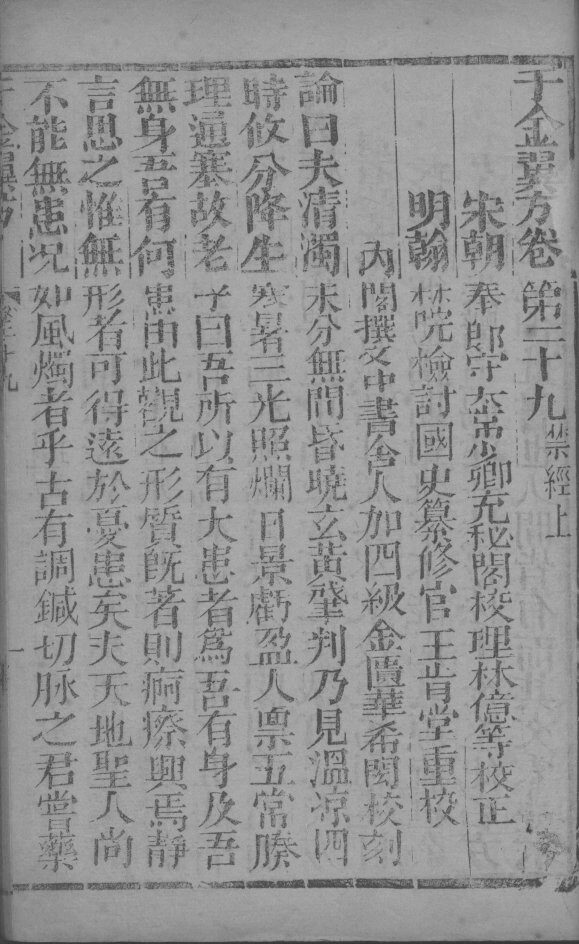 千金翼方卷第二十九禁經上
宋朝奉郎守太常少卿充秘閣校理林億等校正
明翰林院檢討國史纂修官王肯堂重校
內閣撰文中書舍人加四級金匱華希閎校刻
論曰夫清濁未分無間昏曉玄黃肇判乃見溫凉四
時攸分降生寒暑三光照爛日景虧盈人禀五常腠
理通塞故老子曰吾所以有大患者爲吾有身及吾
無身吾有何患由此觀之形質旣著則痾瘵興焉靜
言思之惟無形者可得遠於憂患矣夫天地聖人尚
不能無患況如風燭者乎古有調鍼切脉之君嘗藥
千金翼方 卷二十九 一